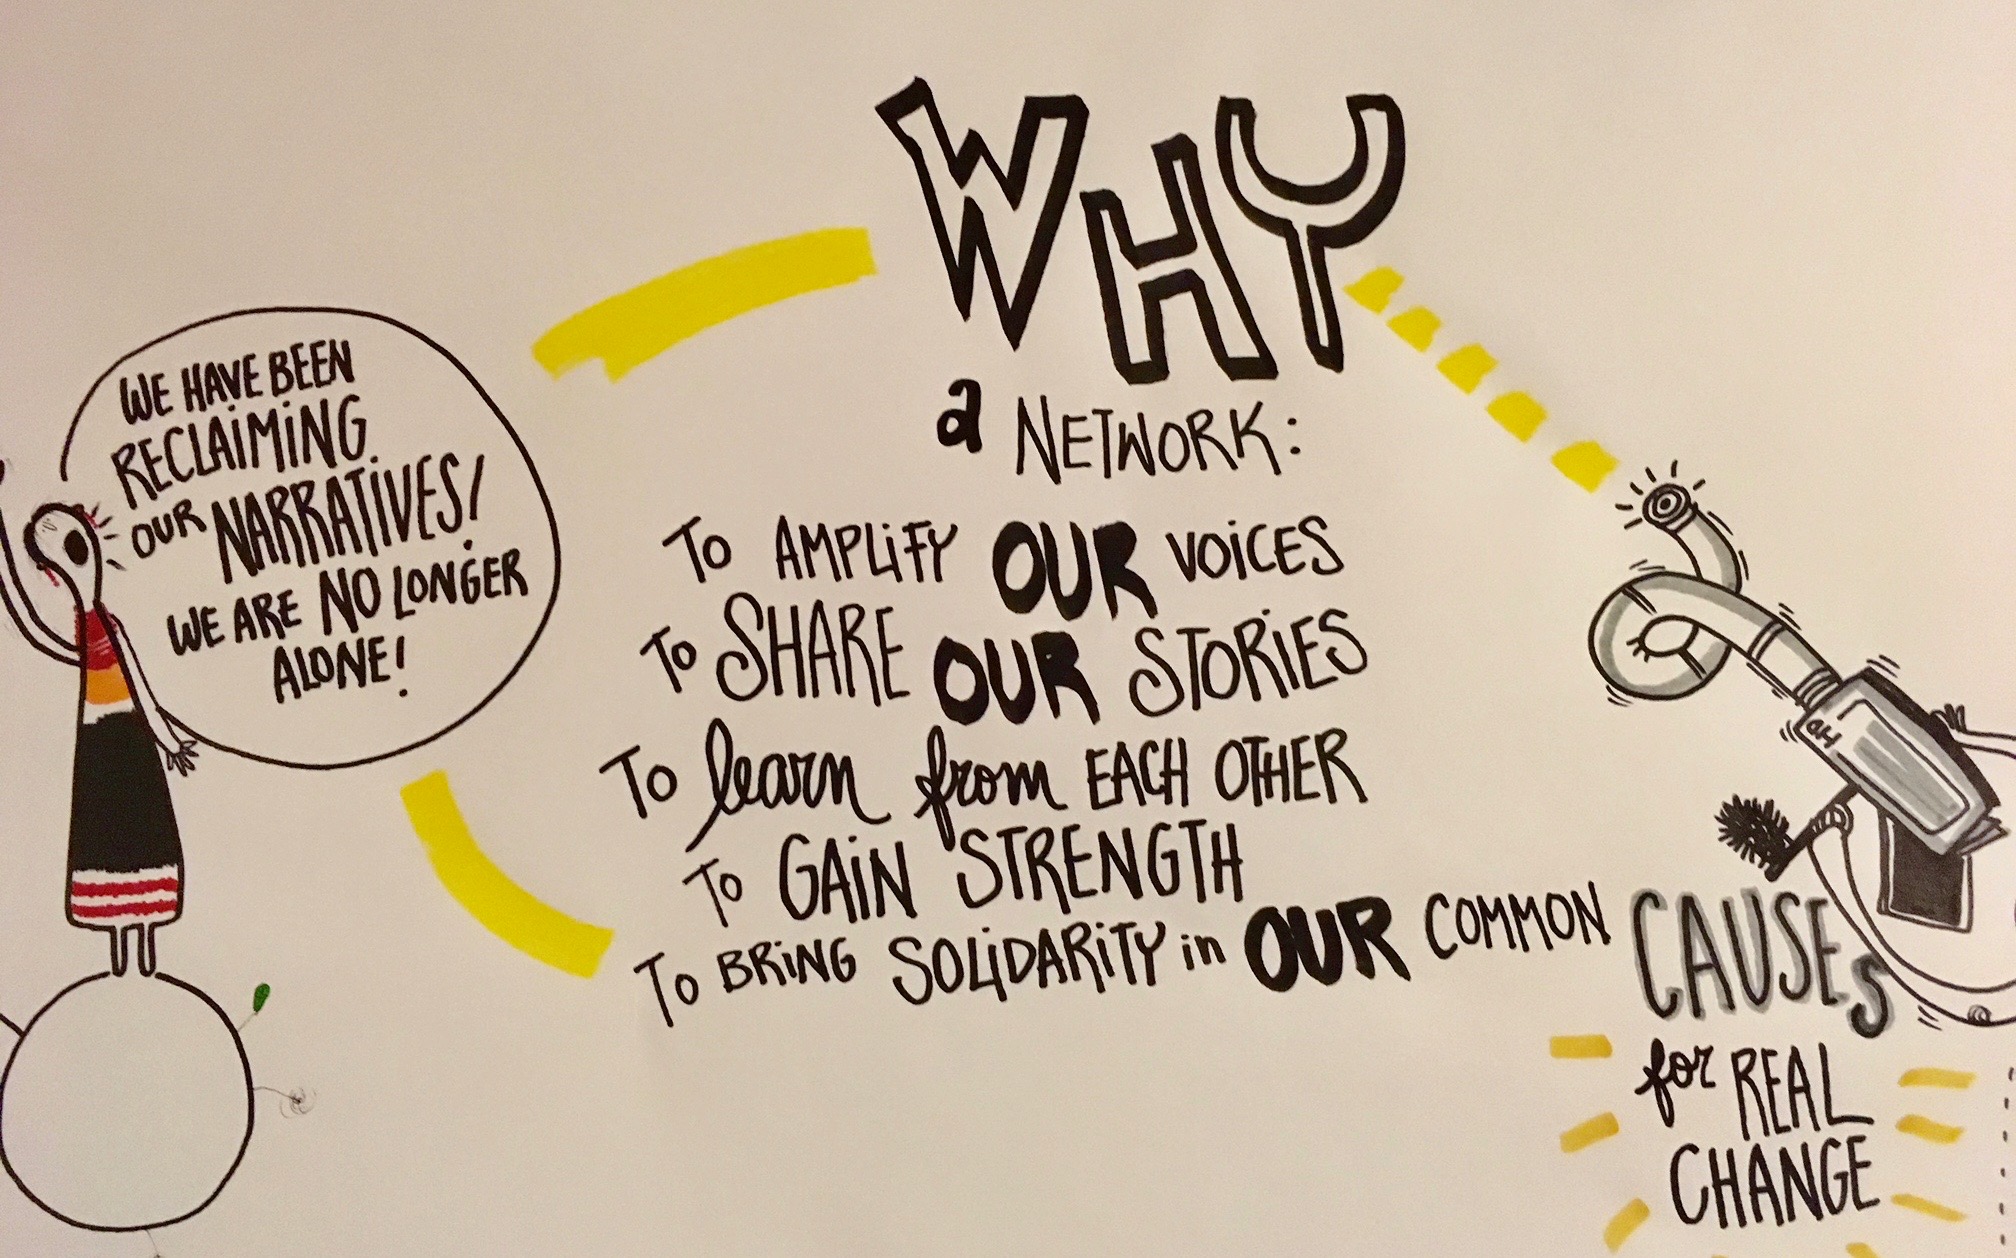 WHY
a NETWORK:
WE HAVE BEEN
RECLAIMING
OUR NARRATIVES!
WE ARE NO LONGER
ALONE!
TO AMPLIFY OUR VOICES
TO SHARE OUR STORIES
TO learn from EACH OTHER
TO GAIN STRENGTH
TO BRING SOLIDARITY in OUR COMMON CAUSES
for REAL
CHANGE